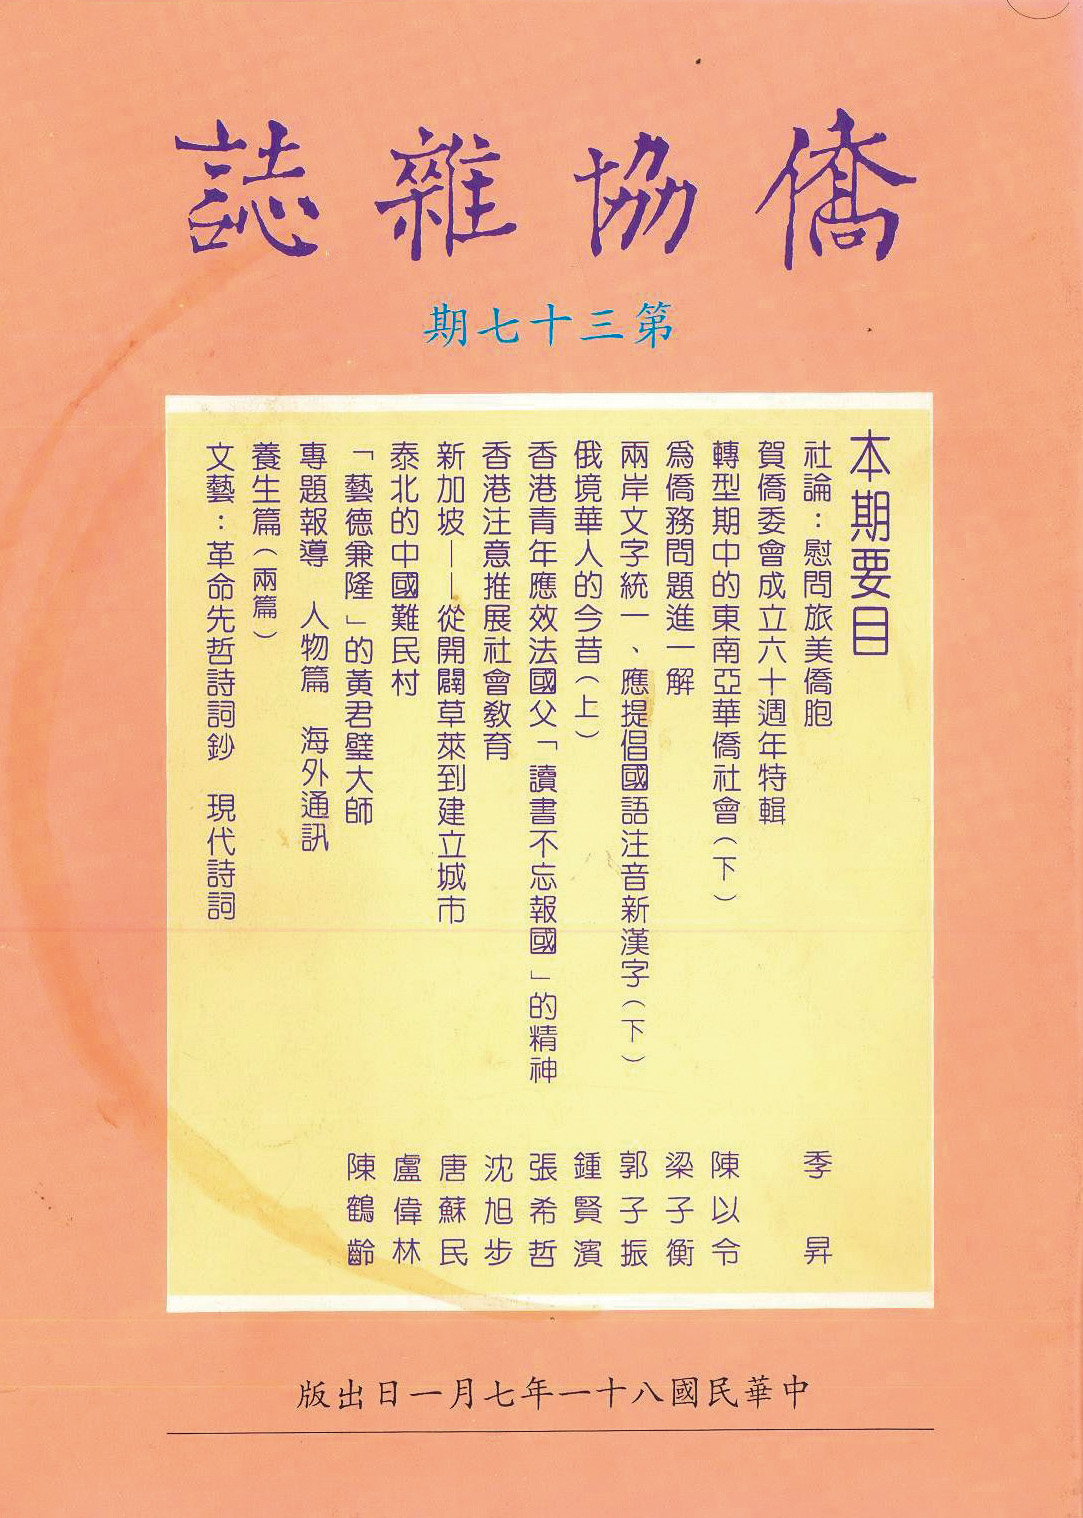 僑協雜誌
第三十七期
本期要目
社論：慰問旅美僑胞 季昇
賀僑委會成立六十週年特輯
轉型期中的東南亞華僑社會（下） 陳以令
為僑務問題進一解 梁子衡
兩岸文字統一、應提倡國語注音新漢字（下） 郭子振
俄境華人的今昔（上） 鍾賢濱
香港青年應效法國父「讀書不忘報國」的精神 張希哲
香港注意推展社會教育 沈旭步
新加坡——從開闢草萊到建立城市 唐蘇民
泰北的中國難民村 盧偉林
「藝德兼隆」的黃君璧大師 陳鶴齡
專題報導 人物篇 海外通訊
養生篇（兩篇）
文藝：革命先哲詩詞鈔 現代詩詞
中華民國八十一年七月一日出版